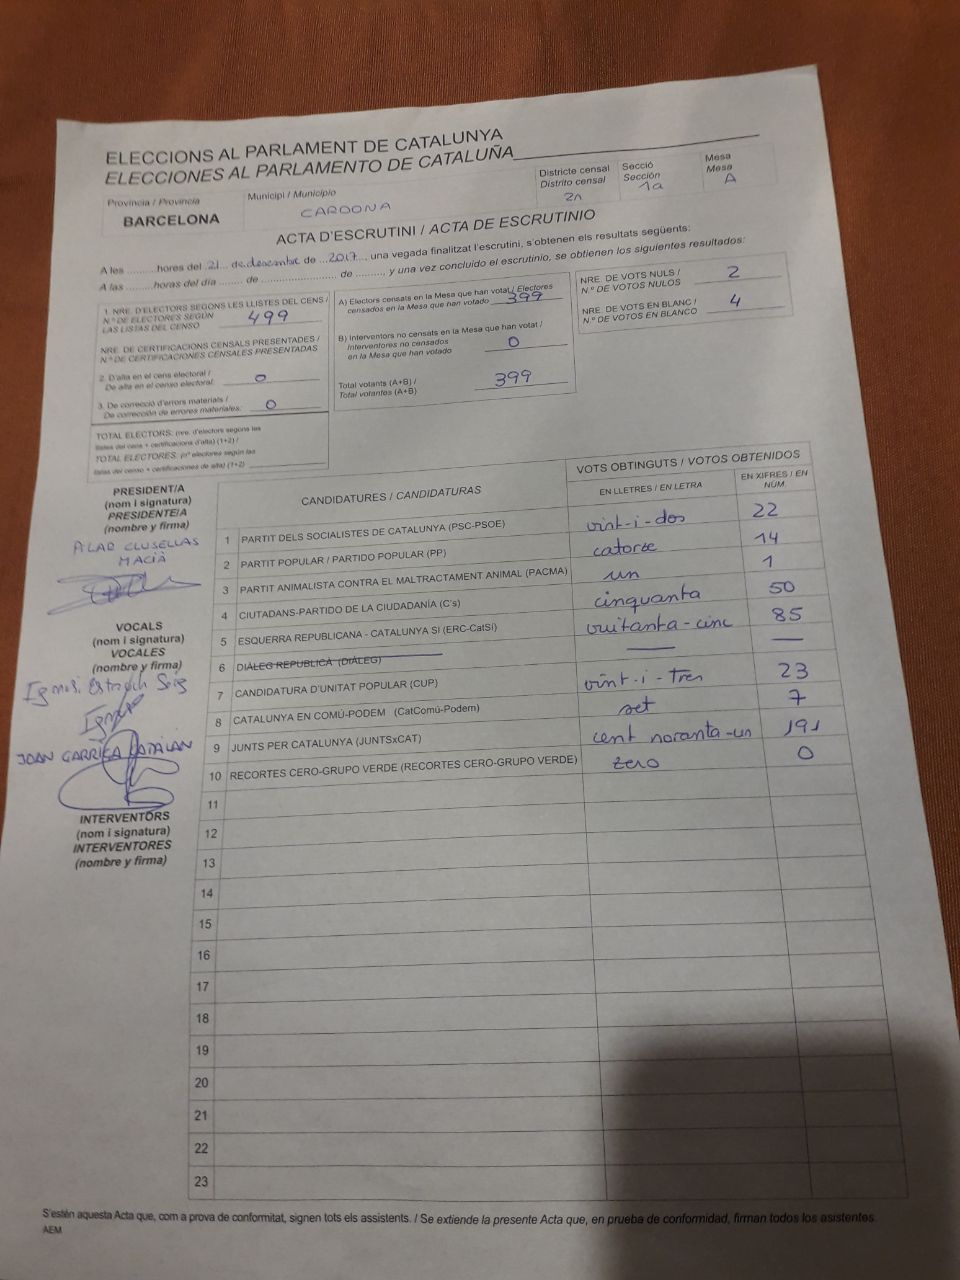 ELECCIONS AL PARLAMENT DE CATALUNYA
ELECCIONES AL PARLAMENTO DE CATALUÑA
Província / Provincia
BARCELONA
Municipi / Municipio
CARDONA
Districte censal
Distrito censal
2n
Secció
Sección
1a
Mesa
Mesa
A
ACTA D'ESCRUTINI / ACTA DE ESCRUTINIO
A les ..........hores del 21 de desembre de 2017, una vegada finalitzat l'escrutini, s'obtenen els resultats següents:
A las ..........horas del día ........ de ........................ de .........., y una vez concluido el escrutinio, se obtienen los siguientes resultados:
1. NRE. D'ELECTORS SEGONS LES LLISTES DEL CENS /
N.º DE ELECTORES SEGÚN
LAS LISTAS DEL CENSO
499
NRE. DE CERTIFICACIONS CENSALS PRESENTADES /
N.º DE CERTIFICACIONES CENSALES PRESENTADAS
2. D'alta en el cens electoral /
De alta en el censo electoral:
0
3. De correcció d'errors materials /
De corrección de errores materiales:
0
TOTAL ELECTORS: (nre. d'electors segons les
llistes del cens + certificacions d'alta) (1+2) /
TOTAL ELECTORES: (nº electores según las
listas del censo + certificaciones de alta) (1+2)
A) Electors censats en la Mesa que han votat / Electores
censados en la Mesa que han votado
399
B) Interventors no censats en la Mesa que han votat /
Interventores no censados
en la Mesa que han votado
0
Total votants (A+B) /
Total votantes (A+B)
399
NRE. DE VOTS NULS /
N.º DE VOTOS NULOS
2
NRE. DE VOTS EN BLANC /
N.º DE VOTOS EN BLANCO
4
PRESIDENT/A
(nom i signatura)
PRESIDENTE/A
(nombre y firma)
PILAR CLUSELLAS
MACIÀ
VOCALS
(nom i signatura)
VOCALES
(nombre y firma)
JOAN GARRIGA CATALÁN
INTERVENTORS
(nom i signatura)
INTERVENTORES
(nombre y firma)
CANDIDATURES / CANDIDATURAS
VOTS OBTINGUTS / VOTOS OBTENIDOS
EN LLETRES / EN LETRA
EN XIFRES / EN NÚM.
1 PARTIT DELS SOCIALISTES DE CATALUNYA (PSC-PSOE) vint-i-dos 22
2 PARTIT POPULAR / PARTIDO POPULAR (PP) catorze 14
3 PARTIT ANIMALISTA CONTRA EL MALTRACTAMENT ANIMAL (PACMA) un 1
4 CIUTADANS-PARTIDO DE LA CIUDADANÍA (C's) cinquanta 50
5 ESQUERRA REPUBLICANA - CATALUNYA SI (ERC-CatSí) vuitanta-cinc 85
6 DIÀLEG REPUBLICÀ (DIÀLEG) — —
7 CANDIDATURA D'UNITAT POPULAR (CUP) vint-i-tres 23
8 CATALUNYA EN COMÚ-PODEM (CatComú-Podem) set 7
9 JUNTS PER CATALUNYA (JUNTSxCAT) cent noranta-un 191
10 RECORTES CERO-GRUPO VERDE (RECORTES CERO-GRUPO VERDE) zero 0
11
12
13
14
15
16
17
18
19
20
21
22
23
S'estén aquesta Acta que, com a prova de conformitat, signen tots els assistents. / Se extiende la presente Acta que, en prueba de conformidad, firman todos los asistentes.
AEM